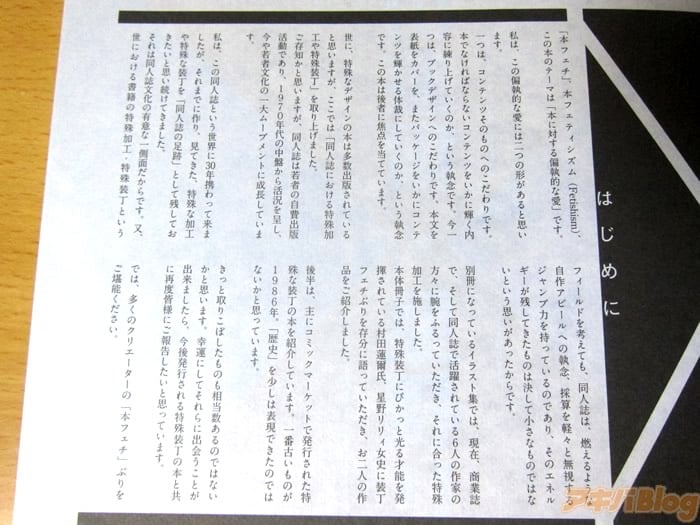 はじめに
「本フェチ」、本フェティシズム(Fetishism)、
この本のテーマは「本に対する偏執的な愛」です。
私は、この偏執的な愛には二つの形があると思い
ます。
一つは、コンテンツそのものへのこだわりです。
本でなければならないコンテンツをいかに輝く内
容に練り上げていくのか、という執念です。今一
つは、ブックデザインへのこだわりです。本文を
表紙をカバーを、またパッケージをいかにコンテ
ンツを輝かせる体裁にしていくのか、という執念
です。この本は後者に焦点を当てています。
世に、特殊なデザインの本は多数出版されている
と思いますが、ここでは「同人誌における特殊加
工や特殊装丁」を取り上げました。
ご存知かと思いますが、同人誌は若者の自費出版
活動であり、1970年代の中盤から活況を呈し、
今や若者文化の一大ムーブメントに成長していま
す。
私は、この同人誌という世界に30年携わって来ま
したが、それまでに作り、見てきた、特殊な加工
や特殊な装丁を「同人誌の足跡」として残してお
きたいと思い続けてきました。
それは同人誌文化の有意な一側面だからです。又、
世における書籍の特殊加工・特殊装丁という
フィールドを考えても、同人誌は、燃えるよ
自作アピールへの執念、採算を軽々と無視す
ジャンプ力を持っているのであり、そのエネル
ギーが残してきたものは決して小さなものではな
いという思いがあったからです。
別冊になっているイラスト集では、現在、商業誌
で、そして同人誌で活躍されている6人の作家の
方々に腕をふるっていただき、それに合った特殊
加工を施しました。
本体冊子では、特殊装丁にぴかっと光る才能を発
揮されている村田蓮爾氏、星野リリィ女史に装丁
フェチぶりを存分に語っていただき、お二人の作
品をご紹介しました。
後半は、主にコミックマーケットで発行された特
殊な装丁の本を紹介しています。一番古いものが
1986年。「歴史」を少しは表現できたのでは
ないかと思っています。
きっと取りこぼしたものも相当数あるのではない
かと思います。幸運にしてそれらに出会うことが
出来ましたら、今後発行される特殊装丁の本と共
に再度皆様にご報告したいと思っています。
では、多くのクリエーターの「本フェチ」ぶりを
ご堪能ください。
アキバBlog